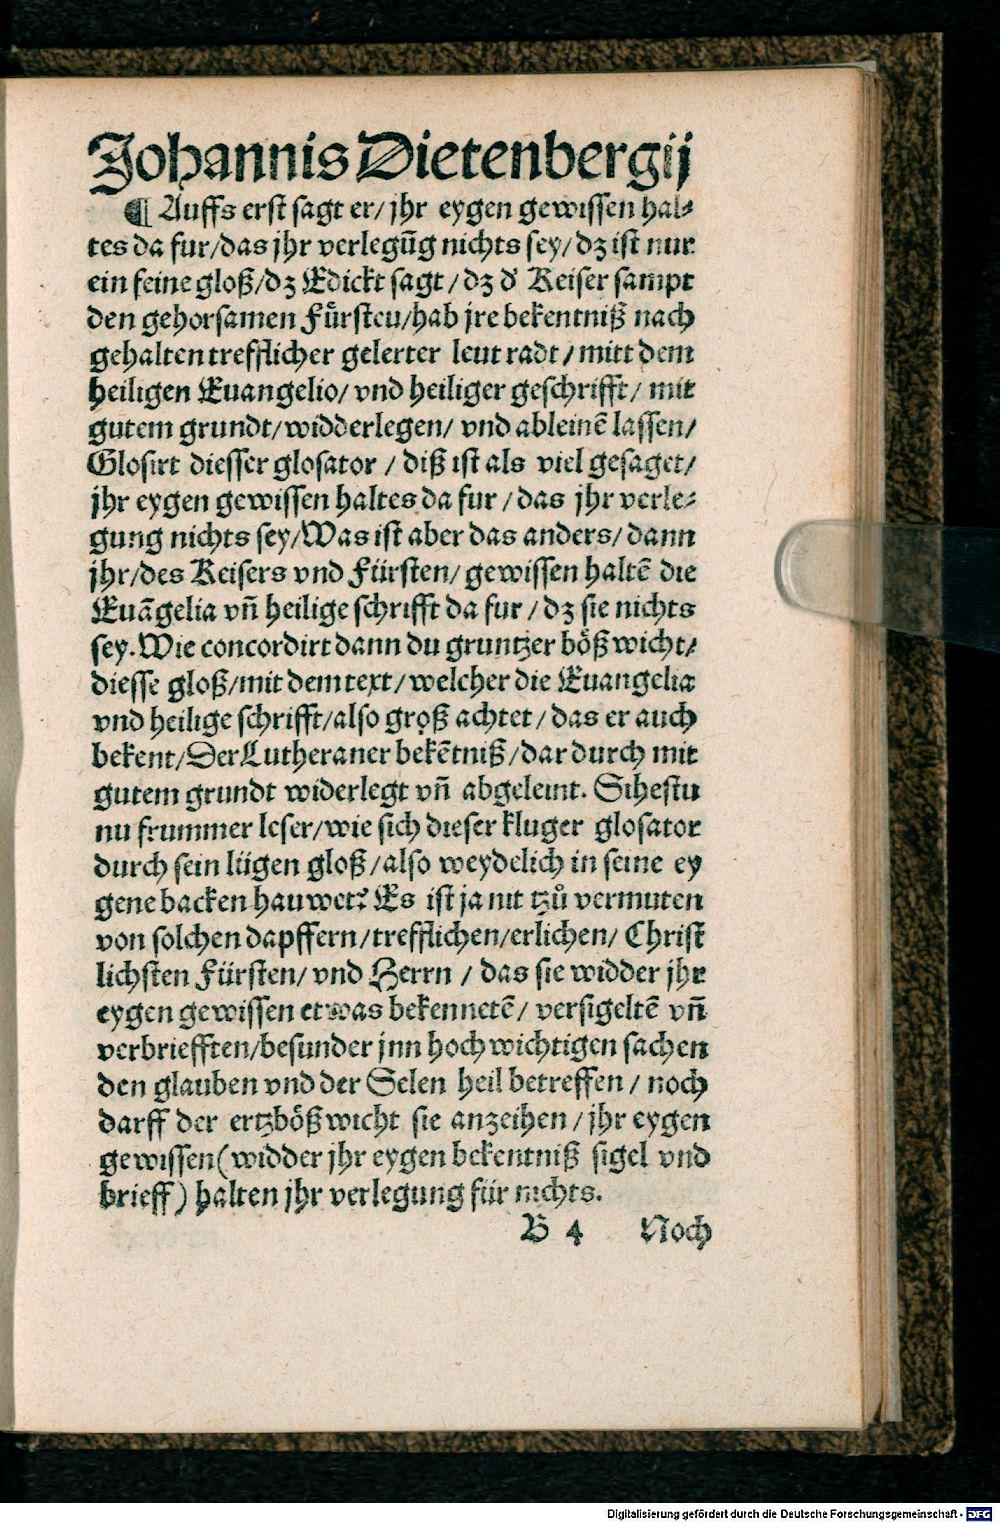 Johannis Dietenbergij
¶ Auffs erst sagt er/ jhr eygen gewissen hal⸗
tes da fur/das jhr verlegūg nichts sey/dz ist nur
ein feine gloß/dz Edickt sagt/dz d' Keiser sampt
den gehorsamen Fürsten/hab jre bekentniß nach
gehalten trefflicher gelerter leut radt/mitt dem
heiligen Euangelio/vnd heiliger geschrifft/ mit
gutem grundt/widderlegen/ vnd ableinē lassen/
Glosirt diesser glosator / diß ist als viel gesaget/
jhr eygen gewissen haltes da fur /das jhr verle⸗
gung nichts sey/Was ist aber das anders/dann
jhr/des Keisers vnd Fürsten/ gewissen haltē die
Euāgelia vñ heilige schrifft da fur/dz sie nichts
sey. Wie concordirt dann du gruntzer bößwicht/
diesse gloß/mit dem text/welcher die Euangelia
vnd heilige schrifft/also groß achtet/das er auch
bekent/Der Lutheraner bekētniß/dar durch mit
gutem grundt widerlegt vñ abgeleint. Sihestu
nu frummer leser/wie sich dieser kluger glosator
durch sein lügen gloß/also weydelich in seine ey
gene backen hauwet? Es ist ja nit tzů vermuten
von solchen dapffern/trefflichen/erlichen/ Christ
lichsten Fürsten/ vnd Herrn / das sie widder jhr
eygen gewissen etwas bekennetē/ versigeltē vñ
verbriefften/besunder jnn hochwichtigen sachen
den glauben vnd der Selen heil betreffen / noch
darff der ertzbößwicht sie anzeihen/jhr eygen
gewissen(widder jhr eygen bekentniß sigel vnd
brieff) halten jhr verlegung für nichts.
B 4 Noch
Digitalisierung gefördert durch die Deutsche Forschungsgemeinschaft - DFG